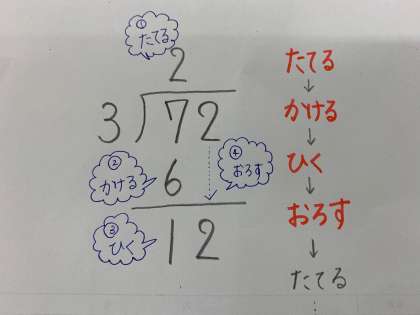 ① たてる
2
3)72
② かける
6
④ おろす
③ ひく
12
たてる
↓
かける
↓
ひく
↓
おろす
↓
たてる
↓